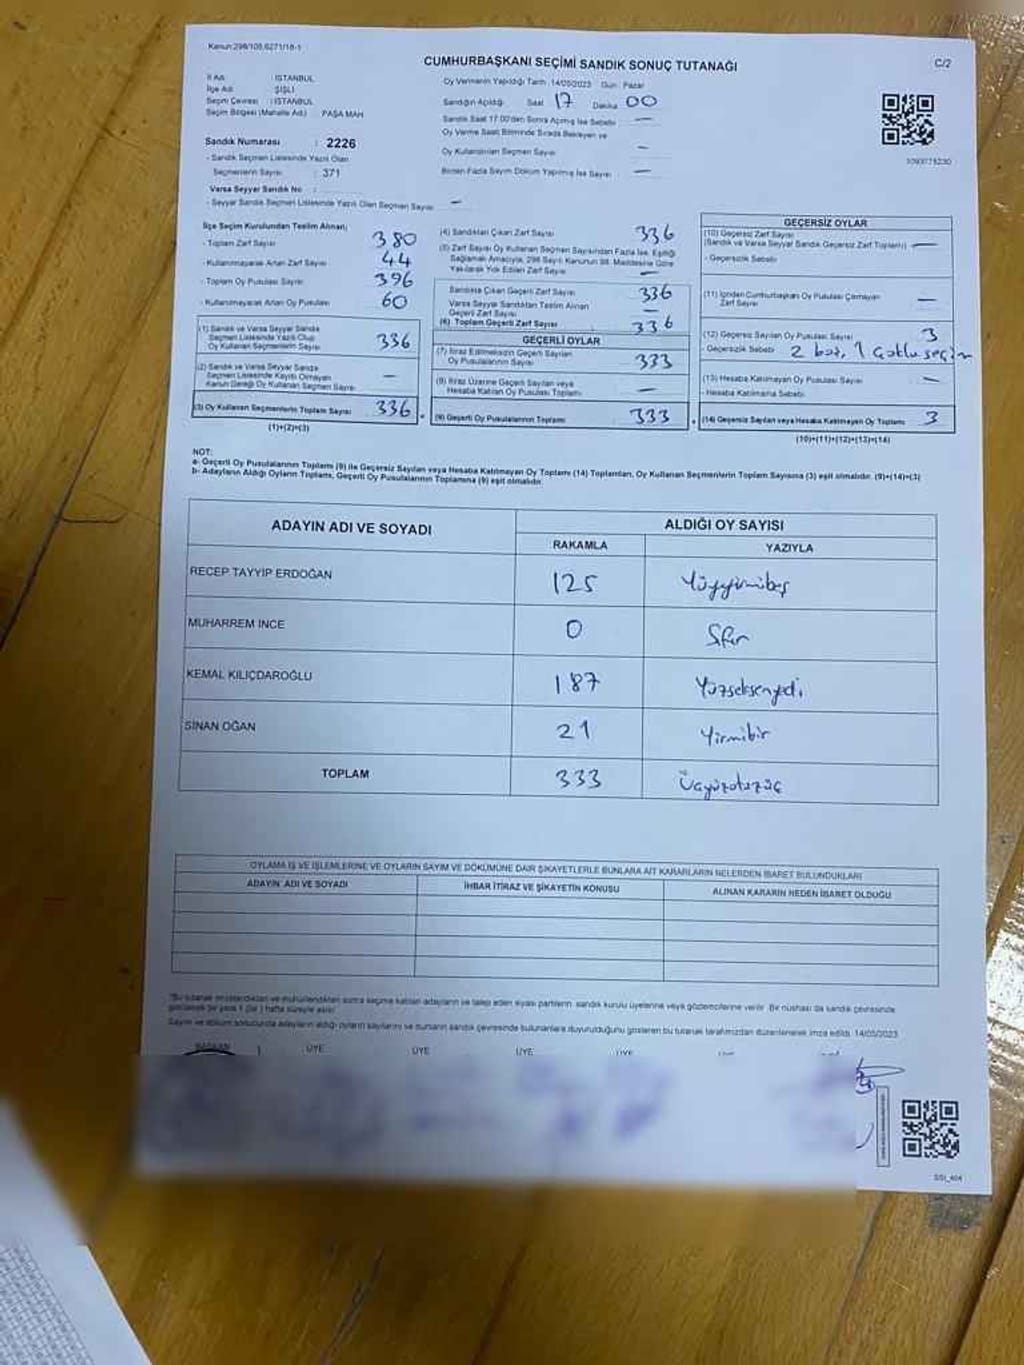 Kanun:298/105,6271/18-1
CUMHURBAŞKANI SEÇİMİ SANDIK SONUÇ TUTANAĞI
C/2
İl Adı : İSTANBUL
İlçe Adı : ŞİŞLİ
Seçim Çevresi : İSTANBUL
Seçim Bölgesi (Mahalle Adı) : PAŞA MAH
Sandık Numarası : 2226
- Sandık Seçmen Listesinde Yazılı Olan
Seçmenlerin Sayısı : 371
Varsa Seyyar Sandık No :
- Seyyar Sandık Seçmen Listesinde Yazılı Olan Seçmen Sayısı —
Oy Vermenin Yapıldığı Tarih : 14/05/2023 Gün : Pazar
Sandığın Açıldığı Saat 17 Dakika 00
Sandık Saat 17:00'den Sonra Açılmış İse Sebebi —
Oy Verme Saati Bitiminde Sırada Bekleyen ve
Oy Kullandırılan Seçmen Sayısı —
Birden Fazla Sayım Döküm Yapılmış İse Sayısı —
1090775230
İlçe Seçim Kurulundan Teslim Alınan;
- Toplam Zarf Sayısı 380
- Kullanılmayarak Artan Zarf Sayısı 44
- Toplam Oy Pusulası Sayısı 396
- Kullanılmayarak Artan Oy Pusulası 60
(1) Sandık ve Varsa Seyyar Sandık
Seçmen Listesinde Yazılı Olup
Oy Kullanan Seçmenlerin Sayısı 336
(2) Sandık ve Varsa Seyyar Sandık
Seçmen Listesinde Kaydı Olmayan
Kanun Gereği Oy Kullanan Seçmen Sayısı —
(3) Oy Kullanan Seçmenlerin Toplam Sayısı 336
(1)+(2)=(3)
(4) Sandıktan Çıkan Zarf Sayısı 336
(5) Zarf Sayısı Oy Kullanan Seçmen Sayısından Fazla İse, Eşitliği
Sağlamak Amacıyla, 298 Sayılı Kanunun 98. Maddesine Göre
Yakılarak Yok Edilen Zarf Sayısı —
Sandıkta Çıkan Geçerli Zarf Sayısı 336
Varsa Seyyar Sandıktan Teslim Alınan
Geçerli Zarf Sayısı —
(6) Toplam Geçerli Zarf Sayısı 336
GEÇERLİ OYLAR
(7) İtiraz Edilmeksizin Geçerli Sayılan
Oy Pusulalarının Sayısı 333
(8) İtiraz Üzerine Geçerli Sayılan veya
Hesaba Katılan Oy Pusulası Toplamı —
(9) Geçerli Oy Pusulalarının Toplamı 333
GEÇERSİZ OYLAR
(10) Geçersiz Zarf Sayısı
(Sandık ve Varsa Seyyar Sandık Geçersiz Zarf Toplamı) —
- Geçersizlik Sebebi
(11) İçinden Cumhurbaşkanı Oy Pusulası Çıkmayan
Zarf Sayısı —
(12) Geçersiz Sayılan Oy Pusulası Sayısı 3
- Geçersizlik Sebebi 2 boş, 1 çoklu seçim
(13) Hesaba Katılmayan Oy Pusulası Sayısı —
- Hesaba Katılmama Sebebi
(14) Geçersiz Sayılan veya Hesaba Katılmayan Oy Toplamı 3
(10)+(11)+(12)+(13)=(14)
NOT:
a- Geçerli Oy Pusulalarının Toplamı (9) ile Geçersiz Sayılan veya Hesaba Katılmayan Oy Toplamı (14) Toplamları, Oy Kullanan Seçmenlerin Toplam Sayısına (3) eşit olmalıdır. (9)+(14)=(3)
b- Adayların Aldığı Oyların Toplamı, Geçerli Oy Pusulalarının Toplamına (9) eşit olmalıdır.
ADAYIN ADI VE SOYADI ALDIĞI OY SAYISI
RAKAMLA YAZIYLA
RECEP TAYYİP ERDOĞAN 125 Yüzyirmibeş
MUHARREM İNCE 0 Sıfır
KEMAL KILIÇDAROĞLU 187 Yüzseksenyedi
SİNAN OĞAN 21 Yirmibir
TOPLAM 333 Üçyüzotuzüç
OYLAMA İŞ VE İŞLEMLERİNE VE OYLARIN SAYIM VE DÖKÜMÜNE DAİR ŞİKAYETLERLE BUNLARA AİT KARARLARIN NELERDEN İBARET BULUNDUKLARI
ADAYIN ADI VE SOYADI İHBAR İTİRAZ VE ŞİKAYETİN KONUSU ALINAN KARARIN NEDEN İBARET OLDUĞU
"Bu tutanak imzalandıktan ve mühürlendikten sonra seçime katılan adayların ve talep eden siyasi partilerin sandık kurulu üyelerine veya gözlemcilerine verilir. Bir nüshası da sandık çevresinde
görülecek bir yere 1 (bir) hafta süreyle asılır.
Sayım ve döküm sonucunda adayların aldığı oyların sayılarını ve bunların sandık çevresinde bulunanlara duyurulduğunu gösteren bu tutanak tarafımızdan düzenlenerek imza edildi. 14/05/2023
BAŞKAN ÜYE ÜYE ÜYE ÜYE